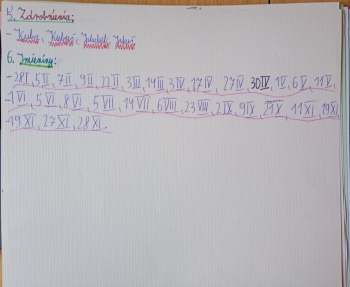 5. Zdrobnienia:
- Kuba, Kubuś, Jakubek, Jakuś
6. Imieniny:
- 28 I, 5 II, 7 II, 9 II, 22 II, 3 III, 14 III, 3 IV, 17 IV, 27 IV, 30 IV, 1 V, 6 V, 11 V,
- 1 VI, 5 VI, 8 VI, 5 VII, 14 VII, 6 VIII, 23 VIII, 2 IX, 9 IX, X, 11 XI, 19 XI,
- 19 XI, 27 XI, 28 XI.